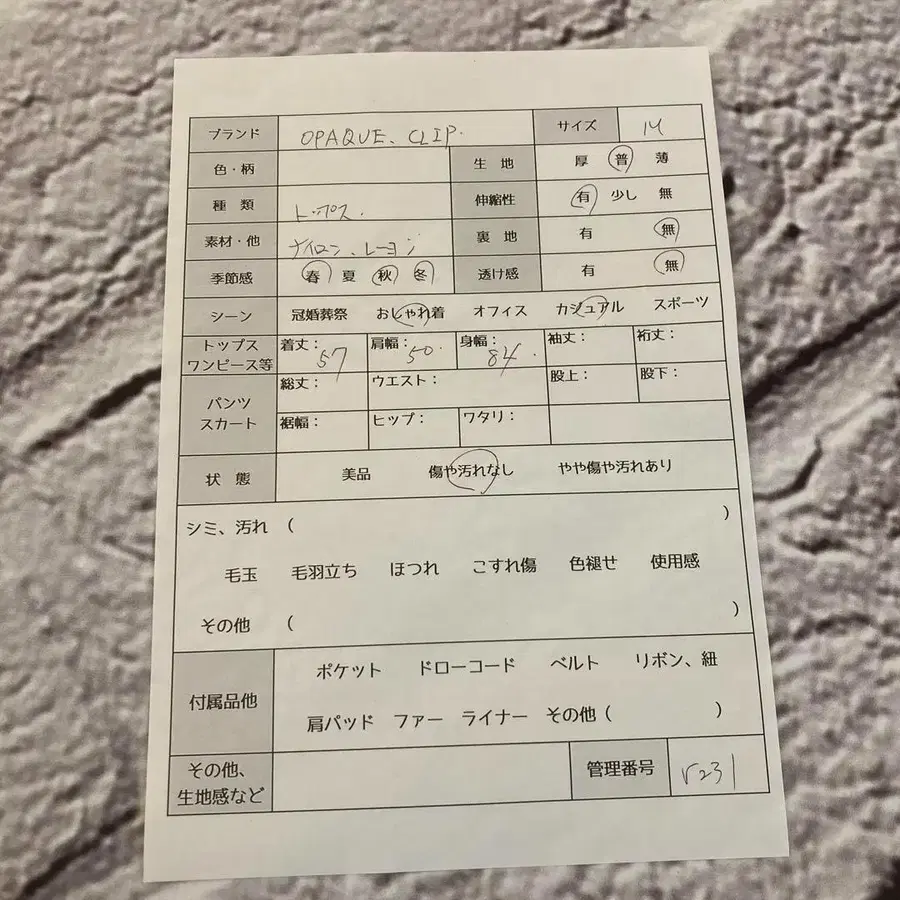 ブランド OPAQUE、CLIP. サイズ M
色・柄 生地 厚 普 薄
種類 トップス. 伸縮性 有 少し 無
素材・他 ナイロン、レーヨン 裏地 有 無
季節感 春 夏 秋 冬 透け感 有 無
シーン 冠婚葬祭 おしゃれ着 オフィス カジュアル スポーツ
トップス
ワンピース等 着丈: 57 肩幅: 50. 身幅: 84. 袖丈: 裄丈:
パンツ
スカート 総丈: ウエスト: 股上: 股下:
裾幅: ヒップ: ワタリ:
状態 美品 傷や汚れなし やや傷や汚れあり
シミ、汚れ ( )
毛玉 毛羽立ち ほつれ こすれ傷 色褪せ 使用感
その他 ( )
付属品他 ポケット ドローコード ベルト リボン、紐
肩パッド ファー ライナー その他 ( )
その他、
生地感など 管理番号 r231